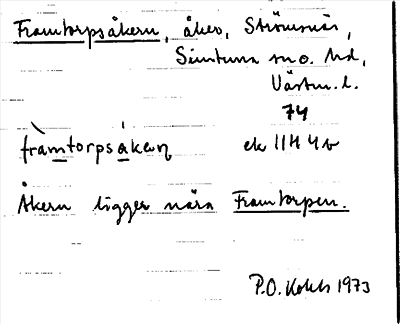 Framtorpsåkern, åker, Strömsnäs,
Simtuna sn o. hd,
Västm. l.
74
fràmtorpsákeɳ ek 11H 4b
Åkern ligger nära Framtorpen.
P.O. 1973